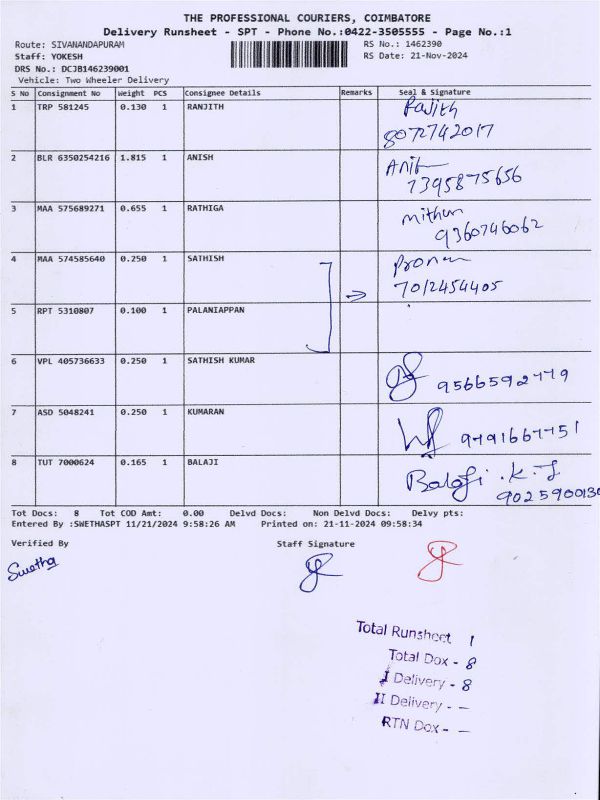 THE PROFESSIONAL COURIERS, COIMBATORE
Delivery Runsheet - SPT - Phone No.:0422-3505555 - Page No.:1
Route: SIVANANDAPURAM RS No.: 1462390
Staff: YOKESH RS Date: 21-Nov-2024
DRS No.: DCJB146239001
Vehicle: Two Wheeler Delivery
S No Consignment No Weight PCS Consignee Details Remarks Seal & Signature
1 TRP 581245 0.130 1 RANJITH
8072742017
2 BLR 6350254216 1.815 1 ANISH
7395875656
3 MAA 575689271 0.655 1 RATHIGA Mithun
9360746062
4 MAA 574585640 0.250 1 SATHISH
7012454405
5 RPT 5310807 0.100 1 PALANIAPPAN
6 VPL 405736633 0.250 1 SATHISH KUMAR 9566592779
7 ASD 5048241 0.250 1 KUMARAN 9791667751
8 TUT 7000624 0.165 1 BALAJI Balaji . K. J
Tot Docs: 8 Tot COD Amt: 0.00 Delvd Docs: Non Delvd Docs: Delvy pts:
Entered By :SWETHASPT 11/21/2024 9:58:26 AM Printed on: 21-11-2024 09:58:34
Verified By Staff Signature
Swetha
Total Runsheet 1
Total Dox - 8
I Delivery - 8
II Delivery - -
RTN Dox - -